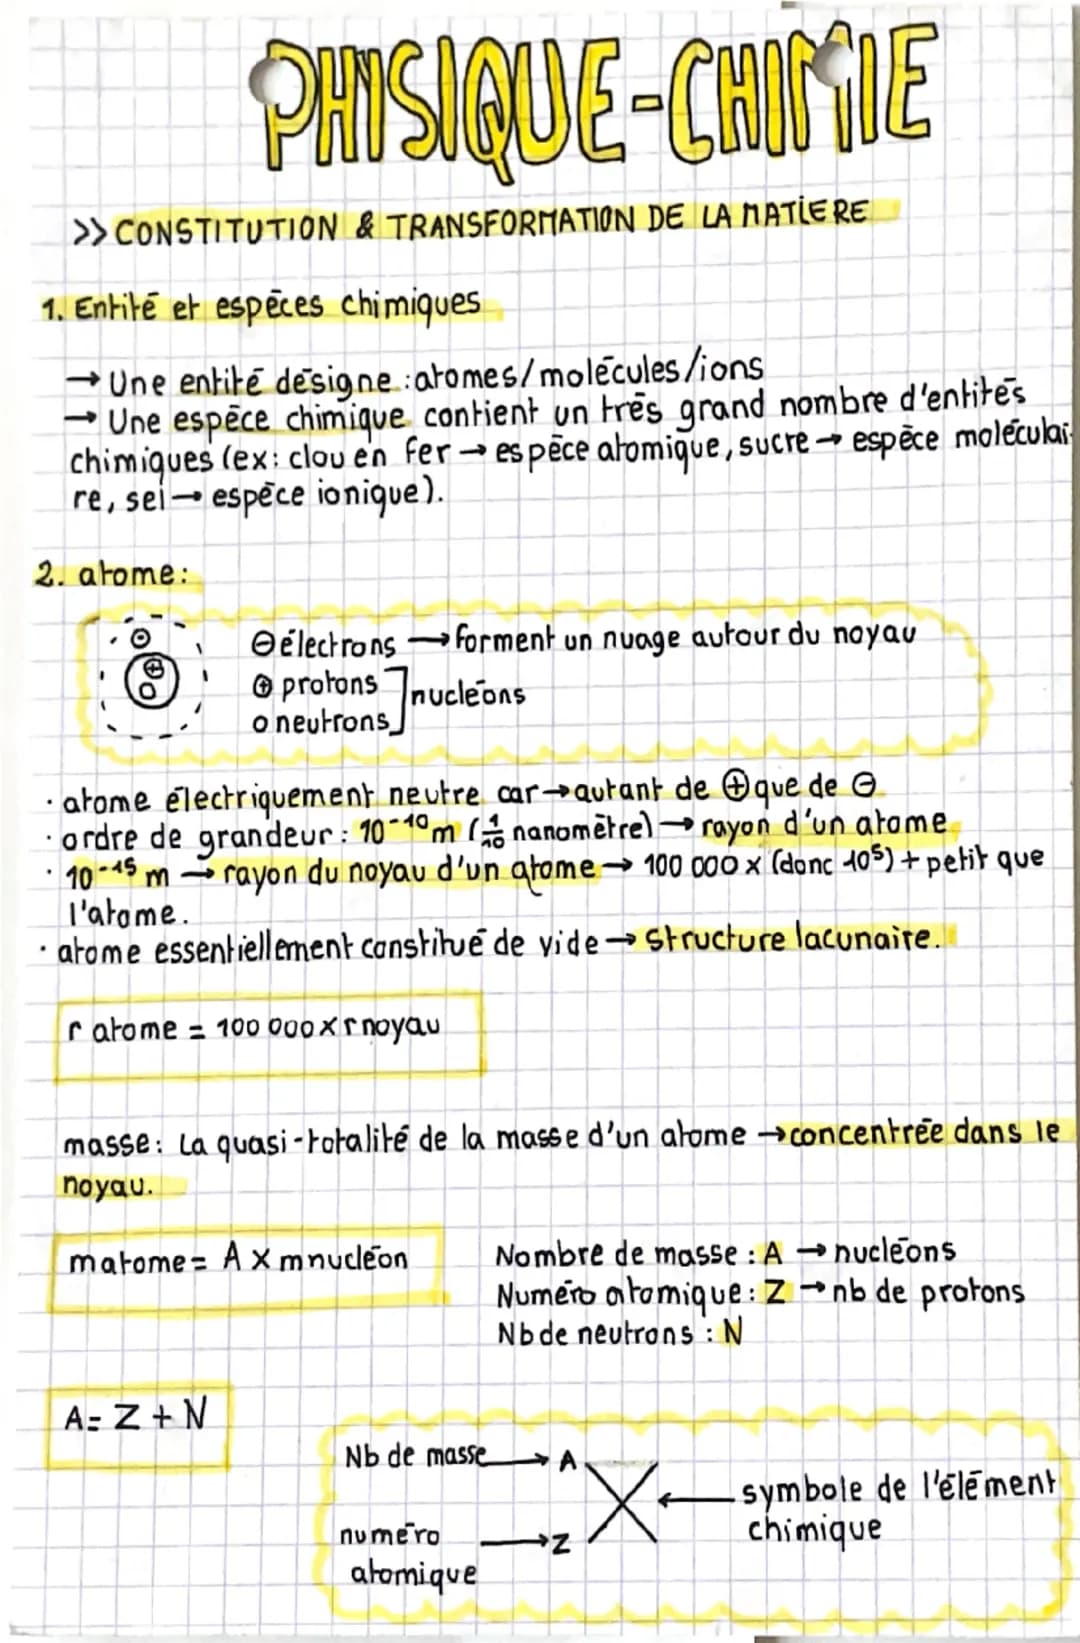 PHYSIQUE-CHIMIE
>> CONSTITUTION & TRANSFORMATION DE LA MATIERE
1. Entité et espèces chimiques
→ Une entité désigne : atomes/molécules/ions
→ Une espèce chimique contient un très grand nombre d'entités
chimiques (ex: clou en fer → espèce atomique, sucre → espèce moléculai-
re, sel → espèce ionique).
2. atome:
⊖ électrons → forment un nuage autour du noyau
⊕ protons ] nucléons
o neutrons
· atome électriquement neutre car → autant de ⊕ que de ⊖
· ordre de grandeur : 10⁻¹⁰ m (1/10 nanomètre) → rayon d'un atome
· 10⁻¹⁵ m → rayon du noyau d'un atome → 100 000 x (donc 10⁵) + petit que
l'atome.
· atome essentiellement constitué de vide → structure lacunaire.
r atome = 100 000 x r noyau
masse : La quasi-totalité de la masse d'un atome → concentrée dans le
noyau.
m atome = A x m nucléon
Nombre de masse : A → nucléons
Numéro atomique : Z → nb de protons
Nb de neutrons : N
A = Z + N
Nb de masse → A
X ← symbole de l'élément
chimique
numéro → Z
atomique